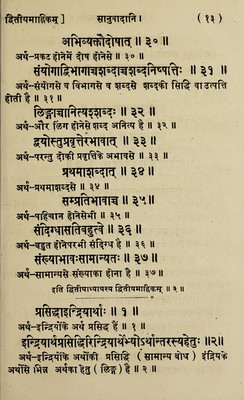 द्वितीयमाह्निकम् ] सानुवादानि । ( १३ )
अभिव्यक्तौदोषात् ॥ ३० ॥
अर्थ-प्रकट होनेमें दोष होनेसे ॥ ३० ॥
संयोगाद्विभागाच्चशब्दाच्चशब्दनिष्पत्तिः ॥ ३१ ॥
अर्थ-संयोगसे व विभागसे व शब्दसे शब्दकी सिद्धि वा उत्पत्ति
होती है ॥ ३१ ॥
लिङ्गाच्चानित्यश्शब्दः ॥ ३२ ॥
अर्थ-और लिंग होनेसे शब्द अनित्य है ॥ ३२ ॥
द्वयोस्तुप्रवृत्तेरभावात् ॥ ३३ ॥
अर्थ-परन्तु दोकी प्रवृत्तिके अभावसे ॥ ३३ ॥
प्रथमाशब्दात् ॥ ३४ ॥
अर्थ-प्रथमाशब्दसे ॥ ३४ ॥
सम्प्रतिभावाच्च ॥ ३५ ॥
अर्थ-पहिचान होनेसेभी ॥ ३५ ॥
संदिग्धास्सतिबहुत्वे ॥ ३६ ॥
अर्थ-बहुत होनेपरभी संदिग्ध है ॥ ३६ ॥
संख्याभावःसामान्यतः ॥ ३७ ॥
अर्थ-सामान्यसे संख्याका होना है ॥ ३७ ॥
इति द्वितीयाध्यायस्य द्वितीयमाह्निकम् ॥ २ ॥
प्रसिद्धाइन्द्रियार्थाः ॥ १ ॥
अर्थ-इन्द्रियोंके अर्थ प्रसिद्ध हैं ॥ १ ॥
इन्द्रियार्थप्रसिद्धिरिन्द्रियार्थेभ्योऽर्थान्तरस्यहेतुः ॥२॥
अर्थ-इन्द्रियोंके अर्थोंकी प्रसिद्धि ( सामान्य बोध ) इंद्रियके
अर्थोंसे भिन्न अर्थका हेतु ( लिङ्ग ) है ॥ २ ॥